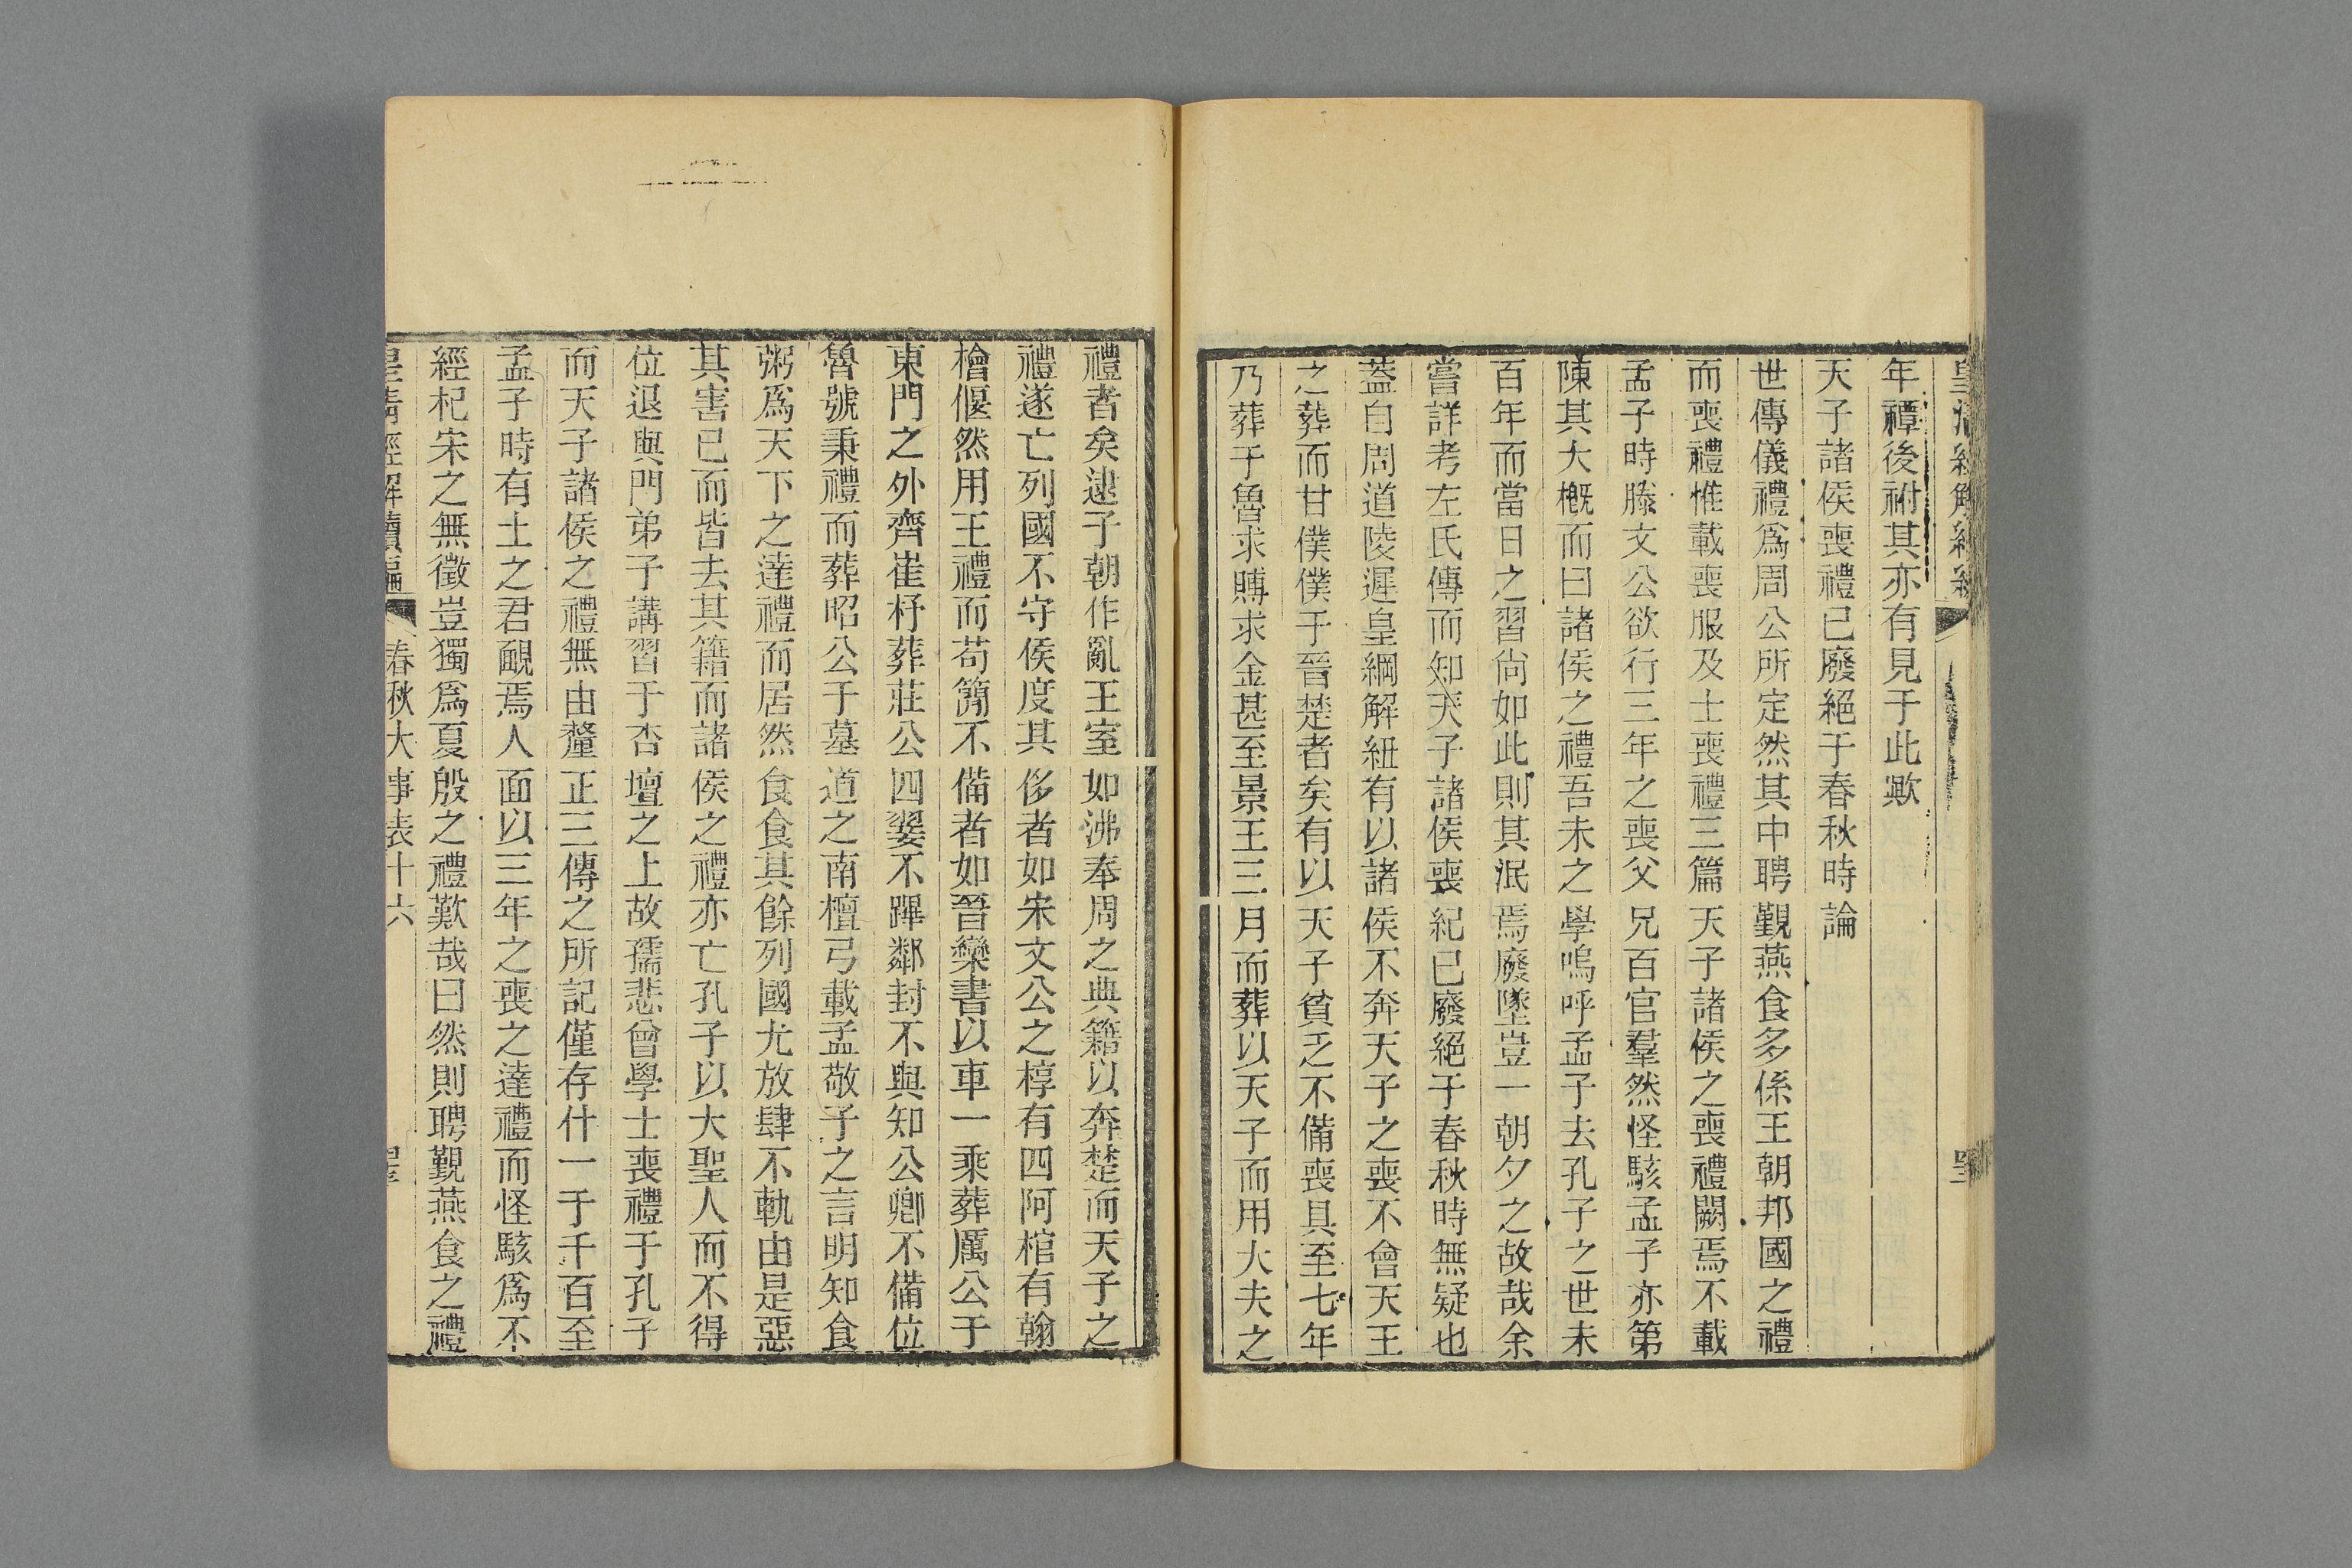 皇清經解續編
年禫後祔其亦有見于此歟
天子諸侯喪禮已廢絕于春秋時論
世傳儀禮爲周公所定然其中聘覲燕食多係王朝邦國之禮
而喪禮惟載喪服及士喪禮三篇天子諸侯之喪禮闕焉不載
孟子時滕文公欲行三年之喪父兄百官羣然怪駭孟子亦第
陳其大槪而曰諸侯之禮吾未之學嗚呼孟子去孔子之世未
百年而當日之習尙如此則其泯焉廢墜豈一朝夕之故哉余
嘗詳考左氏傳而知天子諸侯喪紀已廢絕于春秋時無疑也
蓋自周道陵遲皇綱解紐有以諸侯不奔天子之喪不會天王
之葬而甘僕僕于晉楚者矣有以天子貧乏不備喪具至七年
乃葬于魯求賻求金甚至景王三月而葬以天子而用大夫之
禮者矣逮子朝作亂王室如沸奉周之典籍以奔楚而天子之
禮遂亡列國不守侯度其侈者如宋文公之椁有四阿棺有翰
檜偃然用王禮而苟簡不備者如晉欒書以車一乘葬厲公于
東門之外齊崔杼葬莊公四翣不蹕鄰封不與知公卿不備位
魯號秉禮而葬昭公于墓道之南檀弓載孟敬子之言明知食
粥爲天下之達禮而居然食食其餘列國尤放肆不軌由是惡
其害已而皆去其籍而諸侯之禮亦亡孔子以大聖人而不得
位退與門弟子講習于杏壇之上故孺悲曾學士喪禮于孔子
而天子諸侯之禮無由釐正三傳之所記僅存什一于千百至
孟子時有土之君靦焉人面以三年之喪之達禮而怪駭爲不
經杞宋之無徵豈獨爲夏殷之禮歎哉曰然則聘覲燕食之禮
皇清經解續編 春秋大事表十六